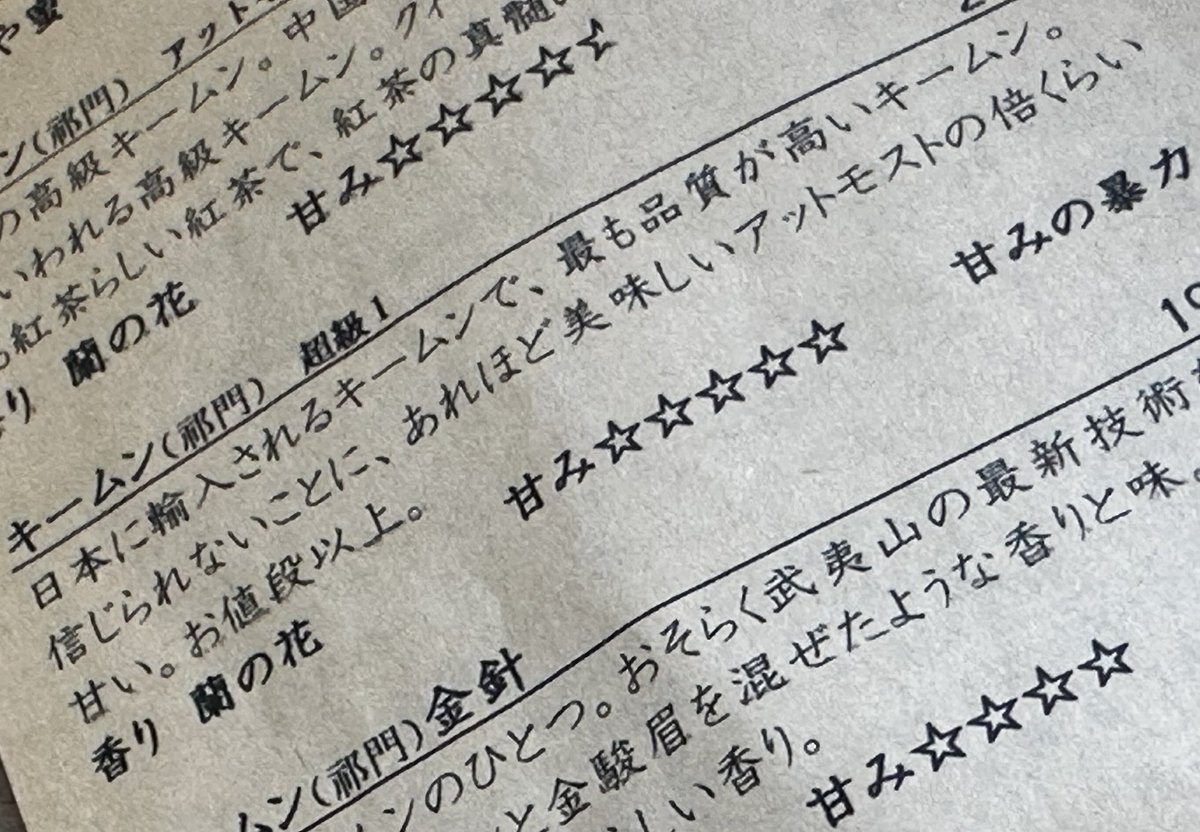 や蜜
ン(祁門) アット
の高級キームン。中国
いわれる高級キームン。クイ
も紅茶らしい紅茶で、紅茶の真髄
り 蘭の花 甘み☆☆☆☆
キームン(祁門) 超級1
日本に輸入されるキームンで、最も品質が高いキームン。
信じられないことに、あれほど美味しいアットモストの倍くらい
甘い。お値段以上。
香り 蘭の花 甘み☆☆☆☆☆ 甘みの暴力
ムン(祁門)金針 10
ンのひとつ。おそらく武夷山の最新技術
と金駿眉を混ぜたような香りと味。
しい香り。
甘み☆☆☆☆